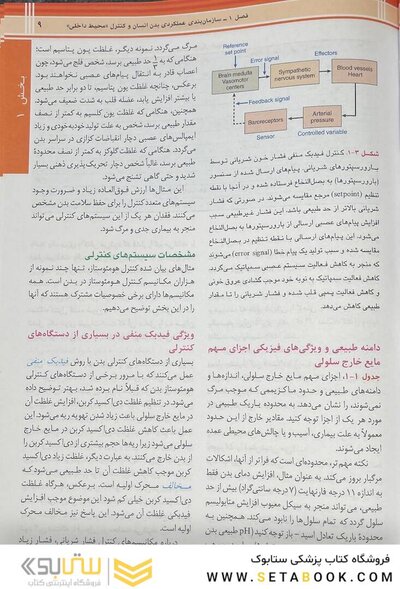 فصل ۱ ـ سازمان‌بندی عملکردی بدن انسان و کنترل «محیط داخلی»
۹
بخش ۱
Reference
set point
Error signal
Effectors
Brain medulla
Vasomotor
centers
Sympathetic
nervous system
Blood vessels
Heart
Feedback signal
Baroreceptors
Arterial
pressure
Sensor
Controlled variable
شکل ۳-۱. کنترل فیدبک منفی فشار خون شریانی توسط
بارورسپتورهای شریانی. پیام‌های ارسال شده از سنسور
(بارورسپتورها) به بصل‌النخاع فرستاده شده و در آنجا با نقطه
تنظیم (setpoint) مرجع مقایسه می‌شوند. در صورتی که فشار
شریانی بالاتر از حد طبیعی باشد، این فشار غیرطبیعی سبب
افزایش پیام‌های عصبی ارسالی از بارورسپتورها به بصل‌النخاع
می‌شود. این پیام‌های ارسالی با نقطه تنظیم در بصل‌النخاع
مقایسه شده و سبب تولید یک پیام خطا (error signal) می‌شوند
که به کاهش فعالیت سیستم عصبی سمپاتیک می‌گردد.
کاهش فعالیت سمپاتیک به نوبه خود موجب گشادی عروق خونی
و کاهش فعالیت پمپی قلب شده و فشار شریانی را تا مقدار
طبیعی کاهش می‌دهد.
دامنه طبیعی و ویژگی‌های فیزیکی اجزای مهم
مایع خارج سلولی
جدول ۱-۱، اجزای مهم مایع خارج سلولی، اندازه‌ها و
دامنه‌های طبیعی و حدود ماکزیممی که موجب مرگ
نمی‌شوند، را نشان می‌دهد. به محدوده باریک طبیعی در
مورد هر یک از اجزا توجه کنید. مقادیر خارج از این حدود
معمولاً به علت بیماری، آسیب و یا چالش‌های محیطی عمده
ایجاد می‌شوند.
نکته مهم‌تر، محدوده‌ای است که فراتر از آنها، اشکالات
مرگبار بروز می‌کند. به عنوان مثال، افزایش دمای بدن فقط
به اندازه ۱۱ درجه فارنهایت (۷ درجه سانتی‌گراد) بیش از حد
طبیعی، می‌تواند منجر به سیکل معیوب افزایش متابولیسم
سلولی گردد که تمام سلول‌ها را نابود می‌کند. همچنین به
محدودۀ باریک تعادل اسید - باز توجه کنید (pH طبیعی بدن
مرگ می‌گردد. نمونه دیگر، غلظت یون پتاسیم است؛
هنگامی که به حد طبیعی برسد، شخص فلج می‌شود، چون
اعصاب قادر به انتقال پیام‌های عصبی نخواهند بود.
برعکس، چنانچه غلظت یون پتاسیم، تا دو برابر حد طبیعی
یا بیشتر افزایش یابد، عضله قلب به شدت ضعیف می‌شود.
همچنین، هنگامی که غلظت یون کلسیم به کمتر از نصف
مقدار طبیعی برسد، شخص به علت تولید خودبه‌خودی و زیاد
ایمپالس‌های عصبی دچار انقباضات کزازی در سراسر بدن
می‌گردد. هنگامی که غلظت گلوکز به کمتر از نصف محدودۀ
طبیعی برسد، غالباً شخص دچار تحریک‌پذیری ذهنی بسیار
شدید و حتی گاهی تشنج می‌شود.
این مثال‌ها ارزش فوق‌العاده زیاد و ضرورت وجود
سیستم‌های متعدد کنترل را برای حفظ سلامت بدن مشخص
می‌کنند. فقدان هر یک از این سیستم‌های کنترلی می‌تواند
منجر به بیماری جدی و مرگ شود.
مشخصات سیستم‌های کنترلی
مثال‌های بیان شده کنترل هومئوستاز، تنها چند نمونه از
هزاران مکانیسم کنترل هومئوستاز در بدن است. همه
مکانیسم‌ها دارای برخی خصوصیات مشترک هستند که آنها
را در این بخش توضیح می‌دهیم.
ویژگی فیدبک منفی در بسیاری از دستگاه‌های
کنترلی
بسیاری از دستگاه‌های کنترل بدن با روش فیدبک منفی
عمل می‌کنند که با مرور برخی از دستگاه‌های کنترلی
هومئوستاز بدن که قبلاً نام برده شد، بهتر توضیح داده
می‌شود. در تنظیم غلظت دی‌اکسید کربن، افزایش غلظت آن
در مایع خارج سلولی باعث زیاد شدن تهویه ریه می‌شود. این
عمل باعث کاهش غلظت دی‌اکسید کربن در مایع خارج
سلولی می‌شود زیرا ریه‌ها حجم بیشتری از دی‌اکسید کربن را
از بدن خارج می‌کنند. به عبارت دیگر، غلظت زیاد دی‌اکسید
کربن موجب کاهش غلظت آن تا حد طبیعی می‌شود که
مخالف محرک اولیه است. برعکس، هرگاه غلظت
دی‌اکسید کربن خیلی کم شود این موضوع موجب افزایش
فیدبکی غلظت آن می‌شود. این پاسخ نیز مخالف محرک
اولیه است.
درباره مکانیسم‌های کنترل فشار شریانی، فشار زیاد
فروشگاه کتاب پزشکی ستابوک
WWW.SETABOOK.COM
ستابوک
فروشگاه اینترنتی کتاب